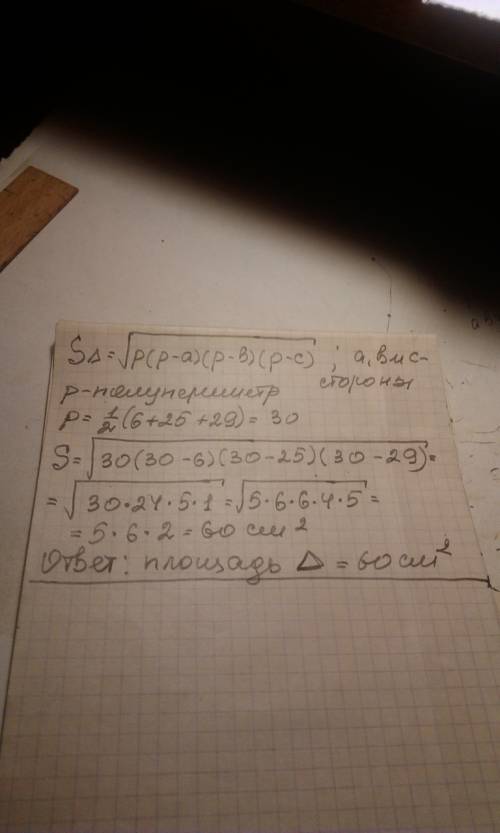 S△ = √p(p-a)(p-в)(p-c) ; а,в и с-
стороны
р-полупериметр
p = 1/2(6+25+29) = 30
S = √30(30-6)(30-25)(30-29) =
= √30·24·5·1 = √5·6·6·4·5 =
= 5·6·2 = 60 см²
Ответ: площадь △ = 60 см²